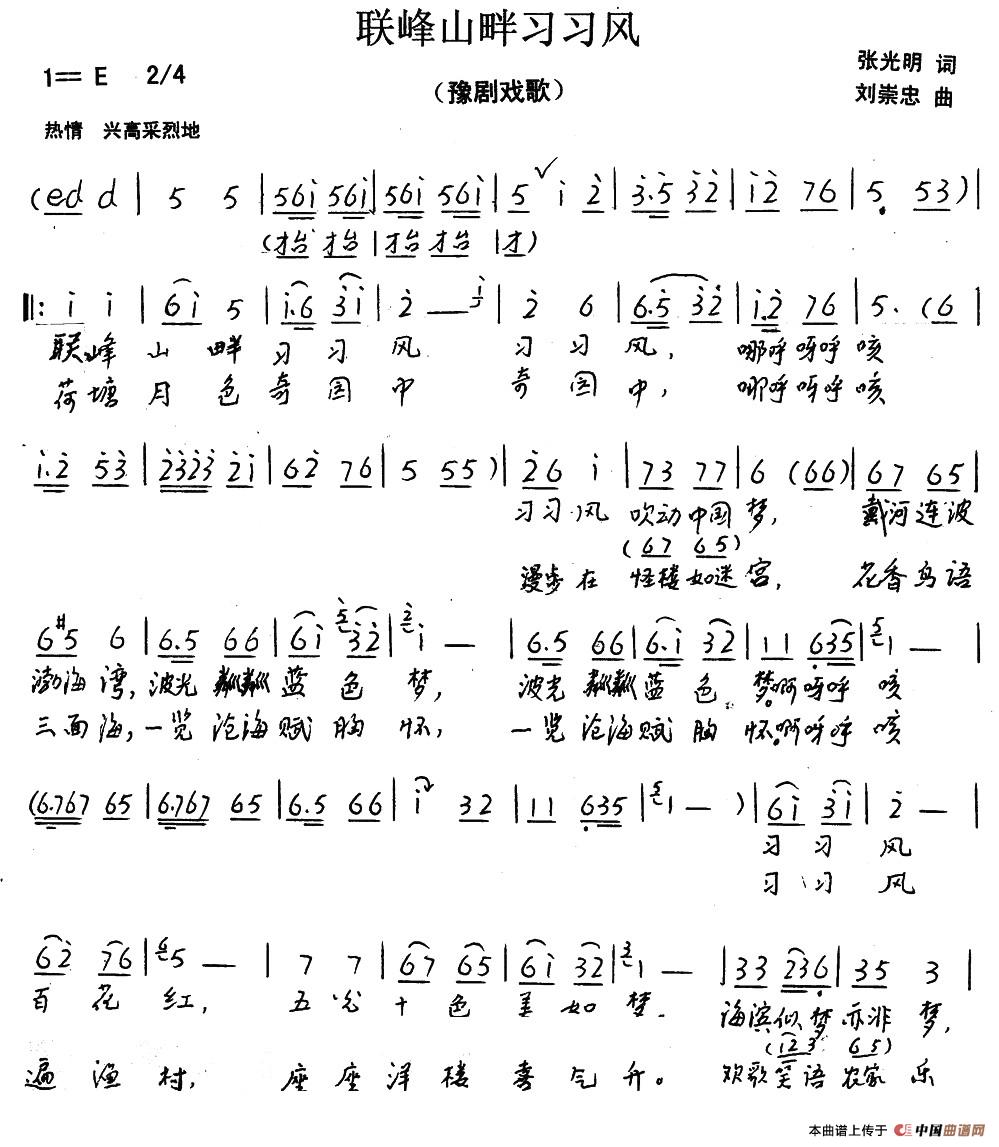 联峰山畔习习风
1== E 2/4
(豫剧戏歌)
张光明 词
刘崇忠 曲
热情 兴高采烈地
(ed d | 5 5 | 56i 56i | 56i 56i | 5 ✓ i 2 | 3.5 32 | i2 76 | 5. 53) |
(才台 才台 | 才台 才台 | 才)
‖: i i | 6i 5 | i.6 3i | 2 — | 2 6 | 6.5 32 | i.2 76 | 5. (6 |
联峰 山 畔 习 习 风 习 习 风, 哪呼呀呼 咳
荷塘 月 色 奇 园 中 奇 园 中, 哪呼呀呼 咳
i.2 53 | 2323 2i | 62 76 | 5 55) | 26 i | 73 77 | 6 (66) | 67 65 |
习习 风 吹动中国 梦, 戴河连波
(67 65)
漫步 在 怪楼如迷 宫, 花香鸟语
6#5 6 | 6.5 66 | 6i 32 | i — | 6.5 66 | 6.i 32 | 11 635 | 1 — |
渤海 湾, 波光粼粼 蓝 色 梦, 波光粼粼 蓝 色 梦啊呀呼 咳
三面 海, 一览沧海赋 胸 怀, 一览沧海赋 胸 怀啊呀呼 咳
(6.767 65 | 6.767 65 | 6.5 66 | i 32 | 11 635 | 1 — ) | 6i 3i | 2 — |
习 习 风
习 习 风
62 76 | 5 — | 7 7 | 67 65 | 6i 32 | 1 — | 33 236 | 35 3 |
百 花 红, 五 光 十 色 美 如 梦. 海滨似梦亦非 梦,
(123 65)
遍 渔 村, 座 座 洋 楼 喜 气 升。 欢歌笑语农家 乐
本曲谱上传于 中国曲谱网